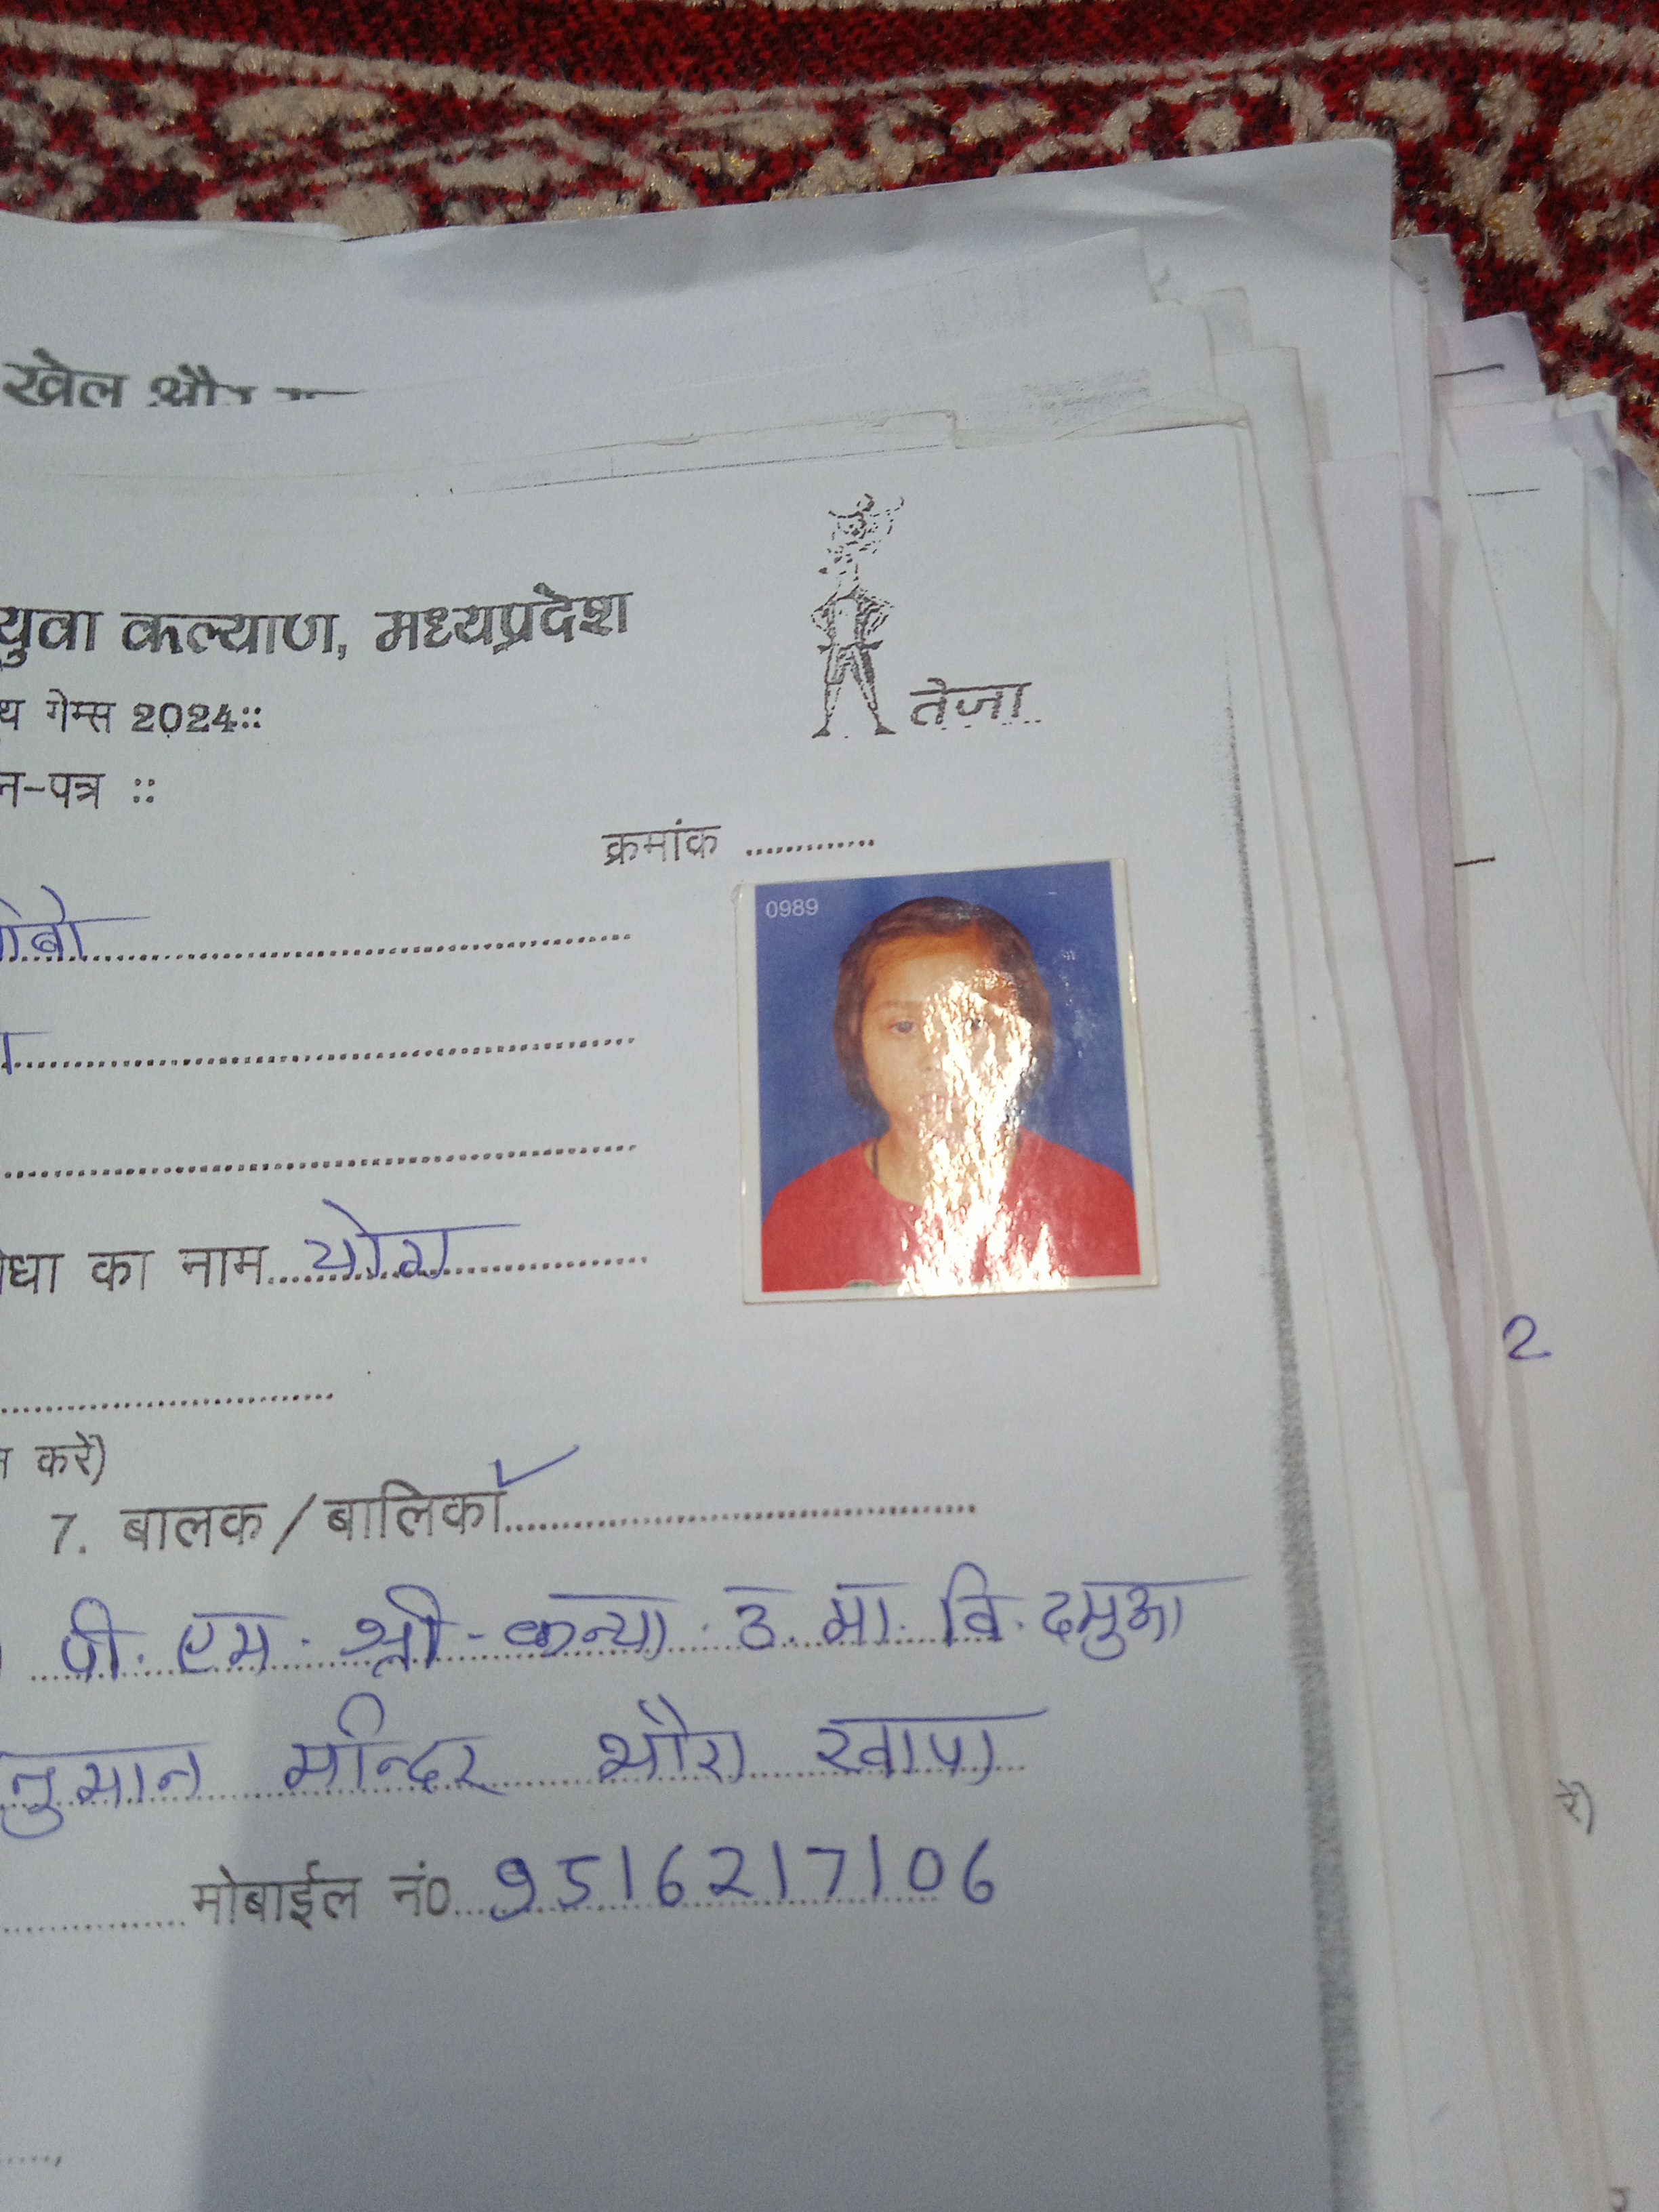 खेल और
युवा कल्याण, मध्यप्रदेश
थ गेम्स 2024::
तेजा
न-पत्र ::
क्रमांक ............
0989
धा का नाम योगा
करें)
7. बालक/बालिका ✓
पी. एम. श्री - कन्या. उ. मा. वि. दमुआ
नुमान मन्दिर भौरा खापा
मोबाईल नं0 9516217106
2